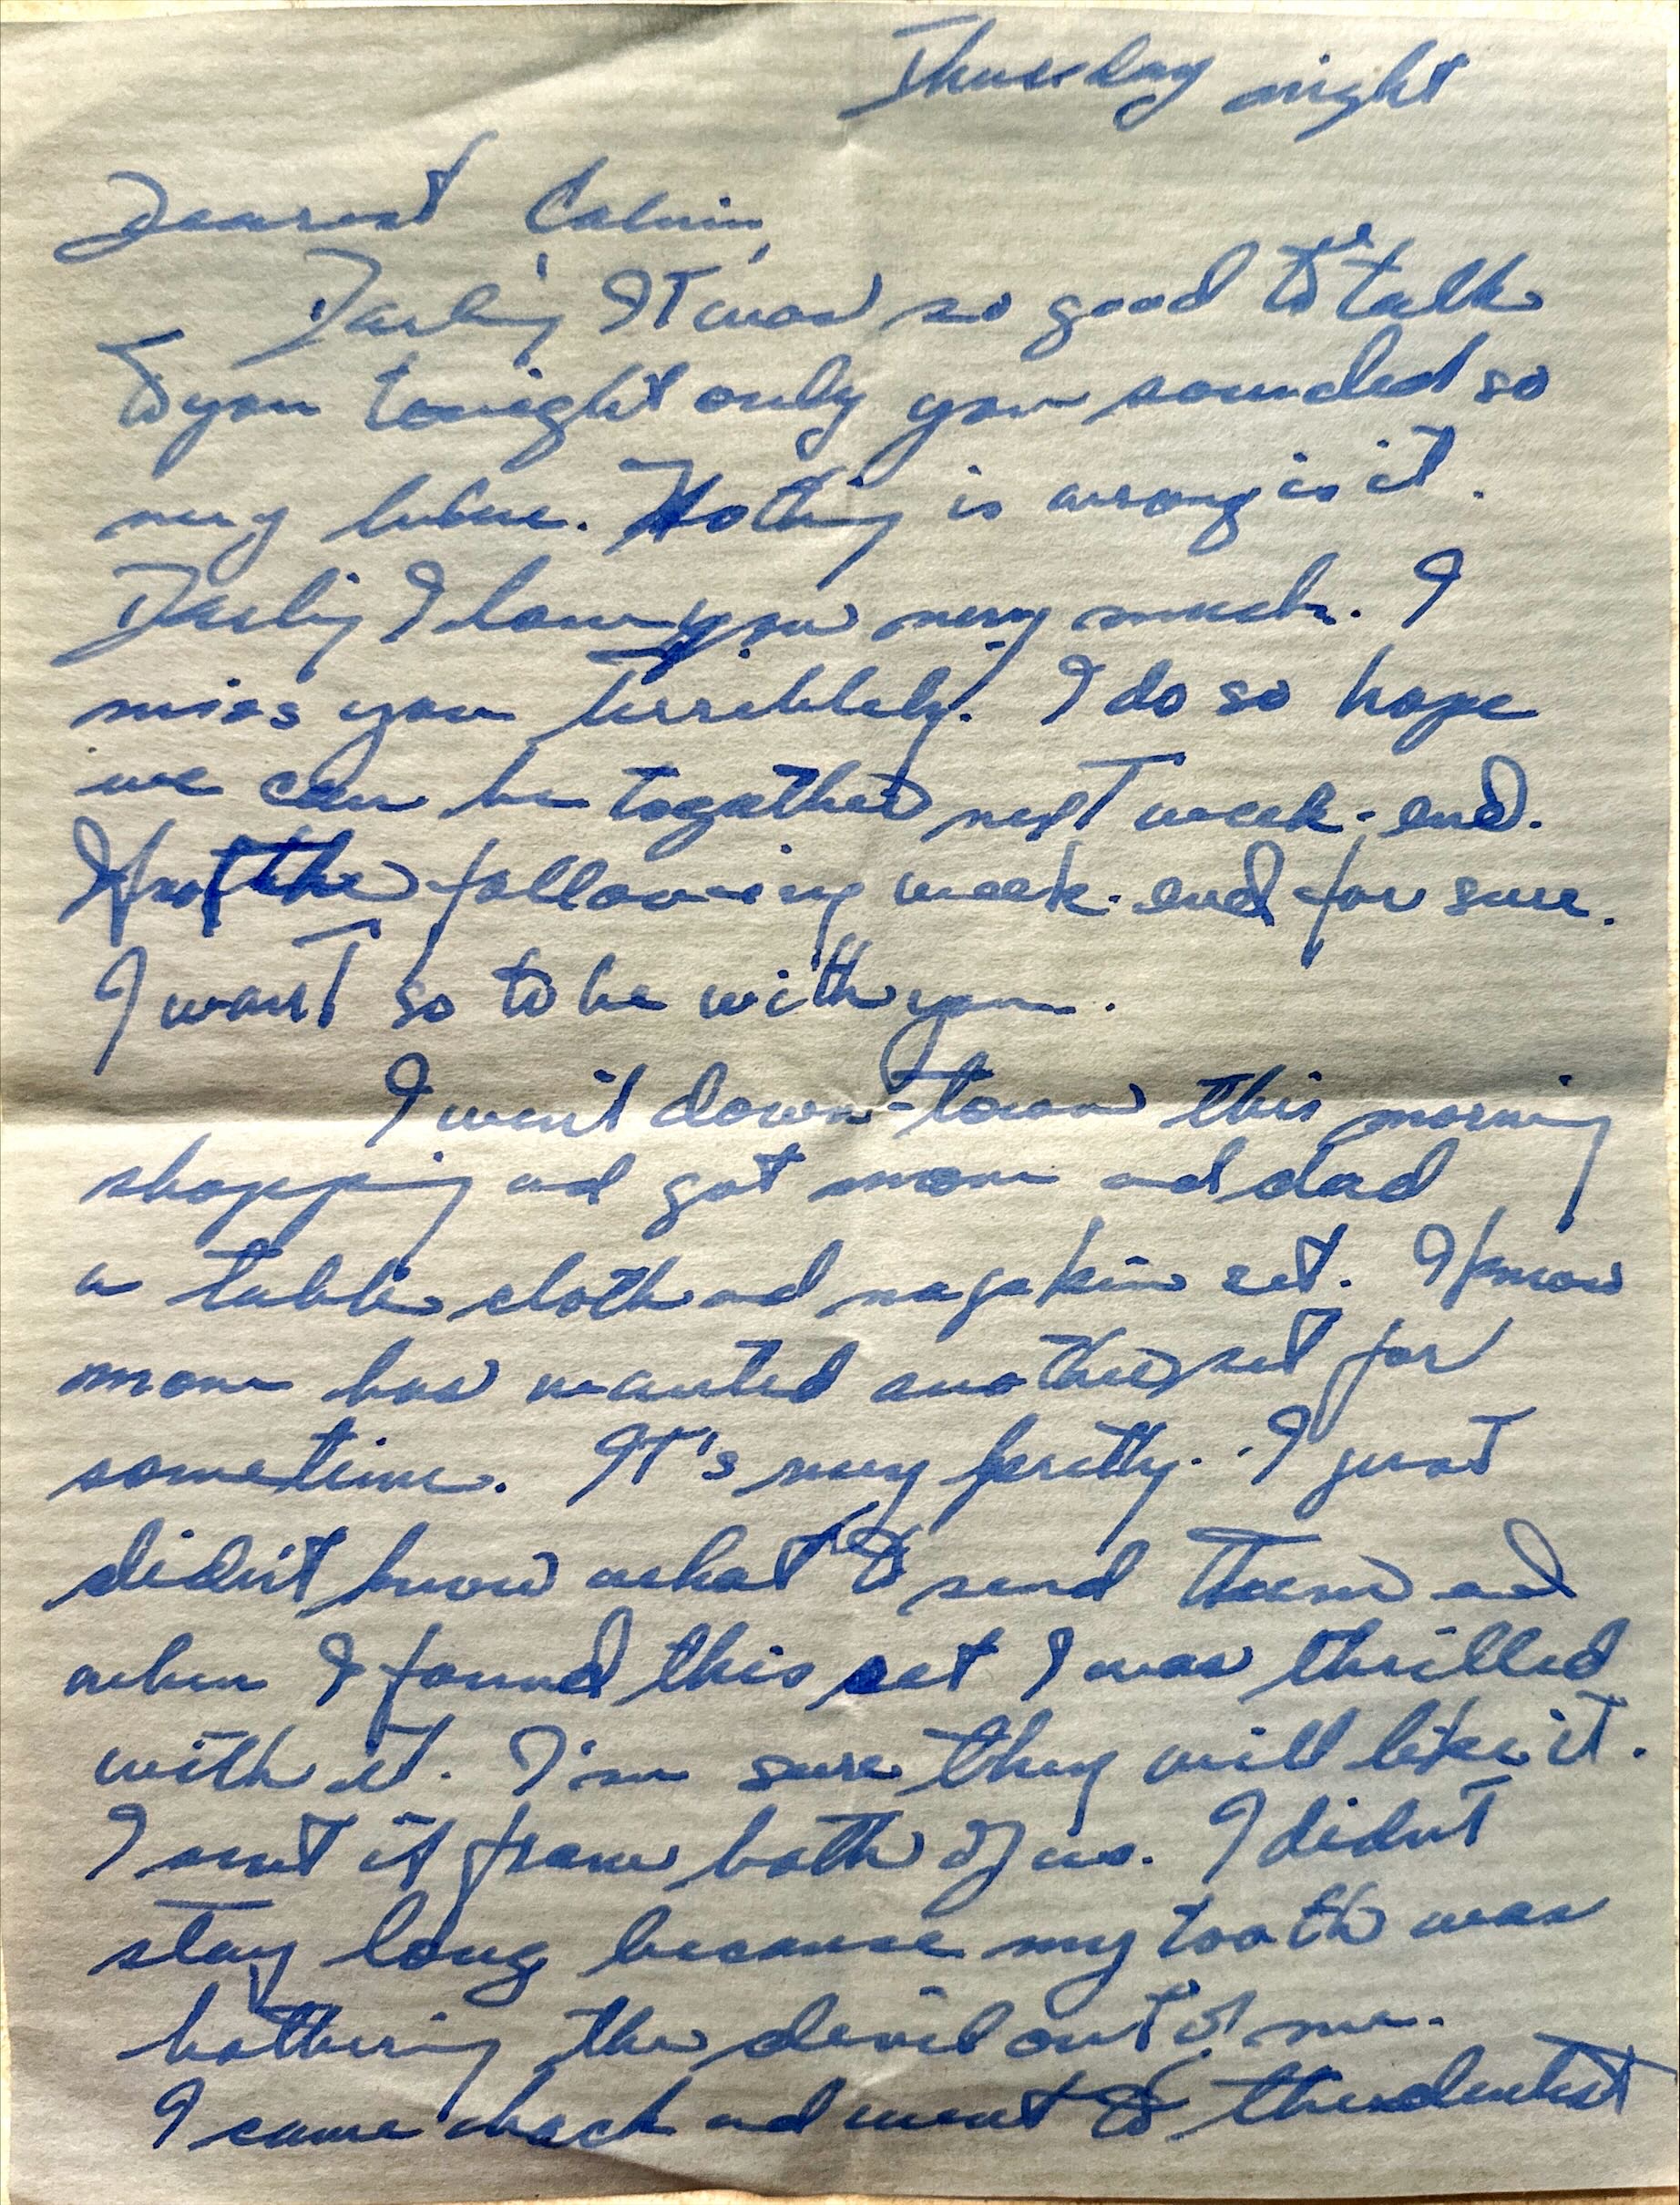 Thursday night
Dearest Calvin,
Darling It was so good to talk
to you tonight only you sounded so
very blue. Nothing is wrong is it.
Darling I love you very much. I
miss you terribly. I do so hope
we can be together next week-end.
If not the following week-end for sure.
I want so to be with you.
I went down-town this morning
shopping and got mom and dad
a table cloth and napkin set. I know
mom has wanted another set for
sometime. It's very pretty. I just
didn't know what to send them and
when I found this set I was thrilled
with it. I'm sure they will like it.
I sent it from both of us. I didn't
stay long because my tooth was
bothering the devil out of me.
I came back and went to the dentist